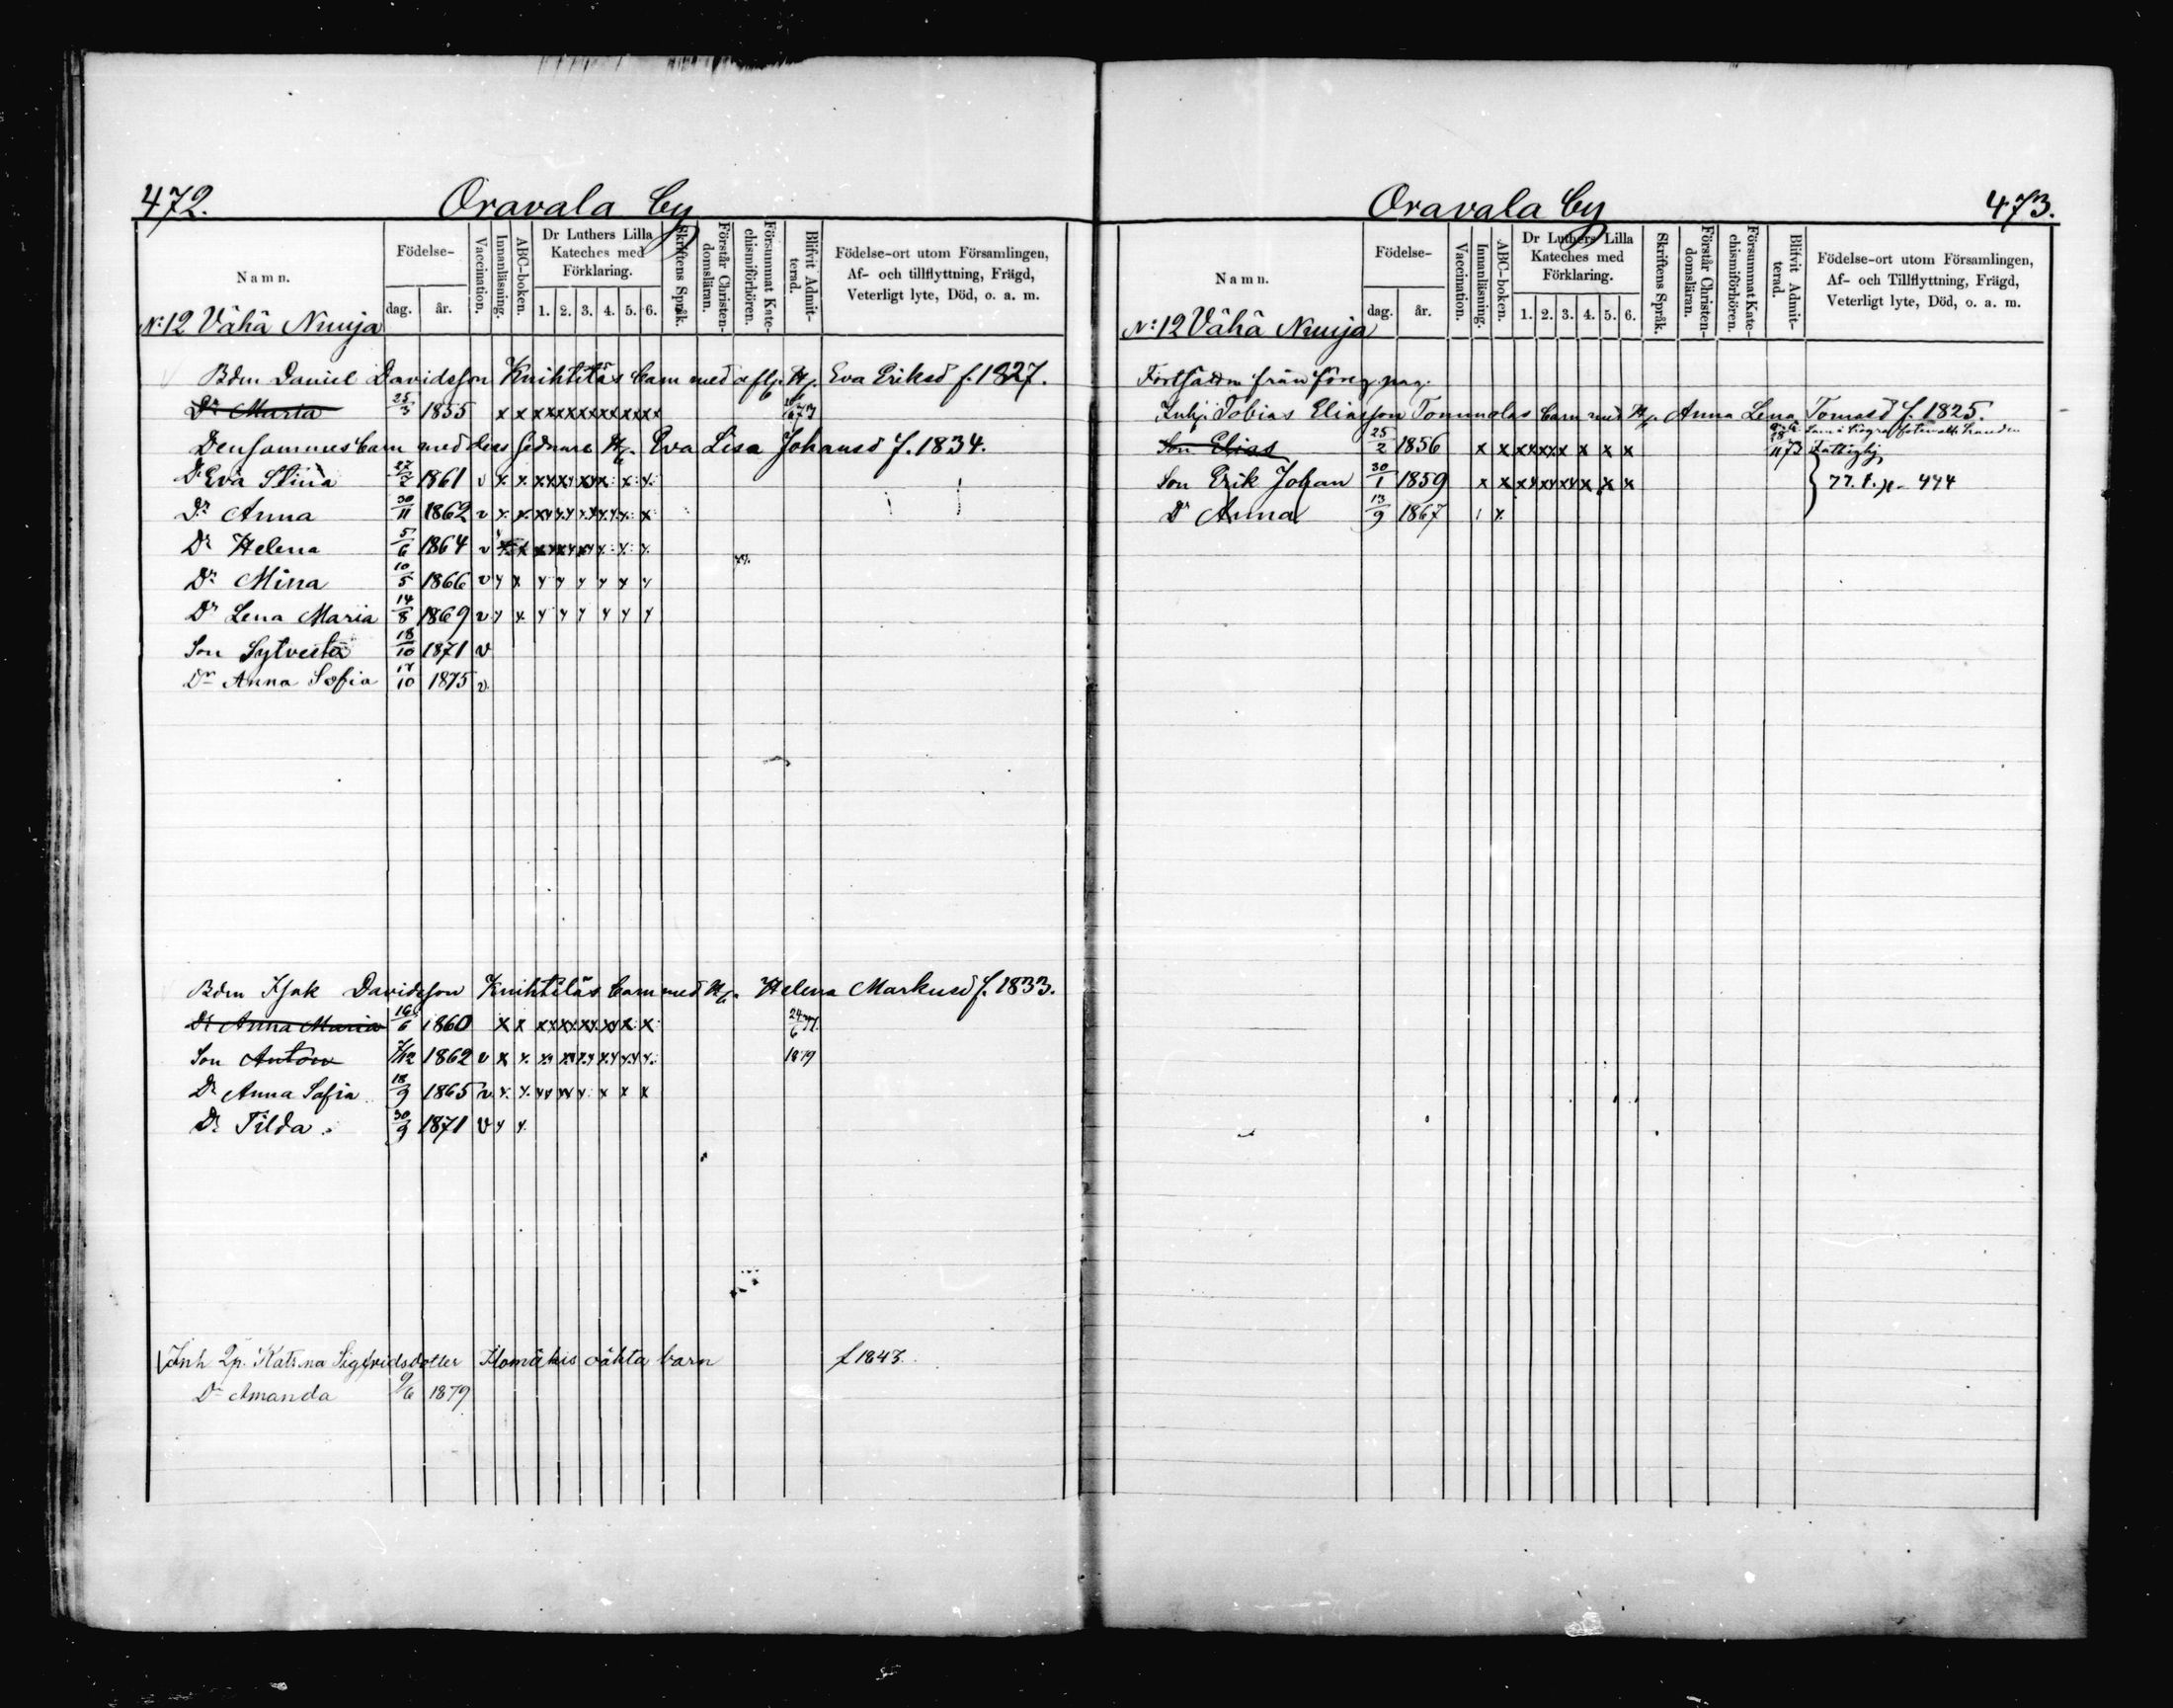 472.
Oravala by
Namn.
Födelse-
dag.
år.
Vaccination.
Innanläsning.
ABC-boken.
Dr Luthers Lilla Kateches med Förklaring.
1. 2. 3. 4. 5. 6.
Skriftens Språk.
Förstår Christendomsläran.
Försummat Katechismiförhören.
Blifvit Admitterad.
Födelse-ort utom Församlingen,
Af- och tillflyttning, Frägd,
Veterligt lyte, Död, o. a. m.
N:12 Vähä Nuuja
Bdn Daniel Davidsson Knihtiläs barn med afl. H. Eva Eriksd f. 1827.
Dr Maria 25/3 1855 x x xx xx xx xx xx xx
Densammes barn med dess sednare H. Eva Lisa Johansd f. 1834.
Dr Eva Stina 27/2 1861 v
Dr Anna 30/11 1862 v
Dr Helena 5/6 1864 v
Dr Mina 10/5 1866 v
Dr Lena Maria 14/8 1869 v
Son Sylvester 18/10 1871 v
Dr Anna Sofia 10 1875 v
Bdn Isak Davidsson Knihtiläs barn med H. Helena Markusd f. 1833.
Dr Anna Maria 16/6 1860 24/6 77.
Son Anton 7/12 1862 v 1879
Dr Anna Sofia 18/9 1865 v
Dr Tilda 30/9 1871 v
Inh Qp. Katrina Sigfridsdotter Ilomäkis oäkta barn f 1843.
Dr Amanda 9/6 1879
Oravala by
473.
Namn.
Födelse-
dag.
år.
Vaccination.
Innanläsning.
ABC-boken.
Dr Luthers Lilla Kateches med Förklaring.
1. 2. 3. 4. 5. 6.
Skriftens Språk.
Förstår Christendomsläran.
Försummat Katechismiförhören.
Blifvit Admitterad.
Födelse-ort utom Församlingen,
Af- och Tillflyttning, Frägd,
Veterligt lyte, Död, o. a. m.
N:12 Vähä Nuuja
Fortsättn från föreg. pag.
Inhj. Tobias Eliasson Tommolas barn med H. Anna Lena Tomasd f. 1825.
Son Elias 25/2 1856 x x xx xx x x x x 73
Son Erik Johan 30/1 1859 x x xx xx xx x x x
Dr Anna 13/9 1867